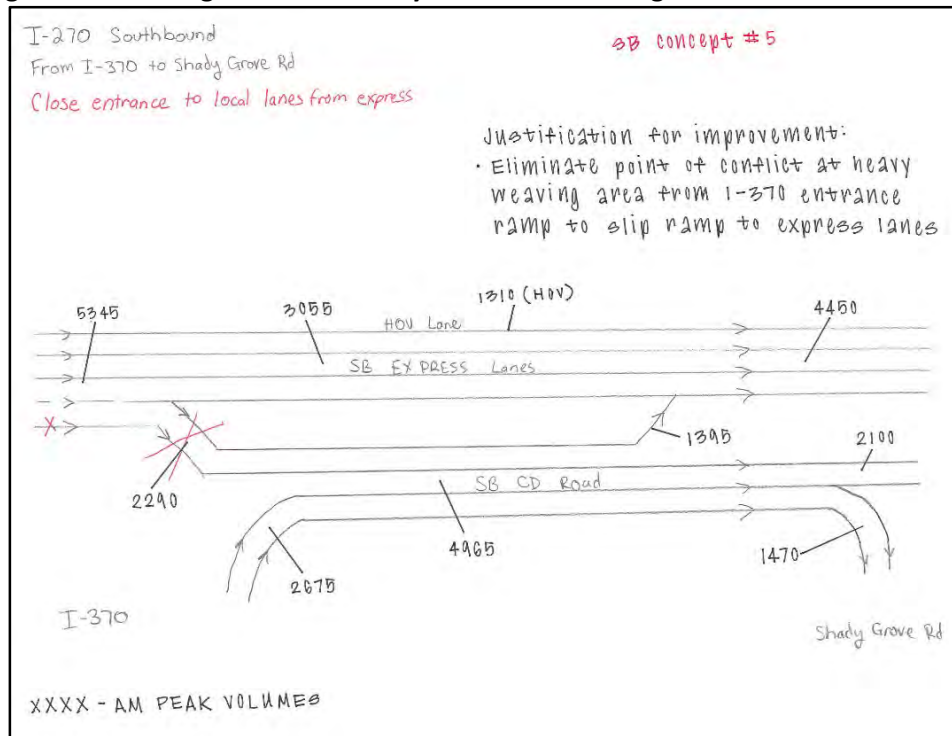 I-270 Southbound
From I-370 to Shady Grove Rd
Close entrance to local lanes from express
SB CONCEPT #5
Justification for improvement:
· Eliminate point of conflict at heavy
weaving area from I-370 entrance
ramp to slip ramp to express lanes
5345
3055
1310 (HOV)
4450
HOV Lane
SB EXPRESS Lanes
X
1395
2100
2290
SB CD Road
4965
2675
1470
I-370
Shady Grove Rd
XXXX - AM PEAK VOLUMES